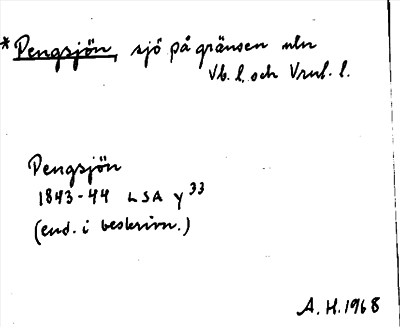 *Pengsjön, sjö på gränsen mln
Vb. l. och Vrml. l.
Pengsjön
1843-44 LSA Y 33
(end. i beskrivn.)
A. H. 1968